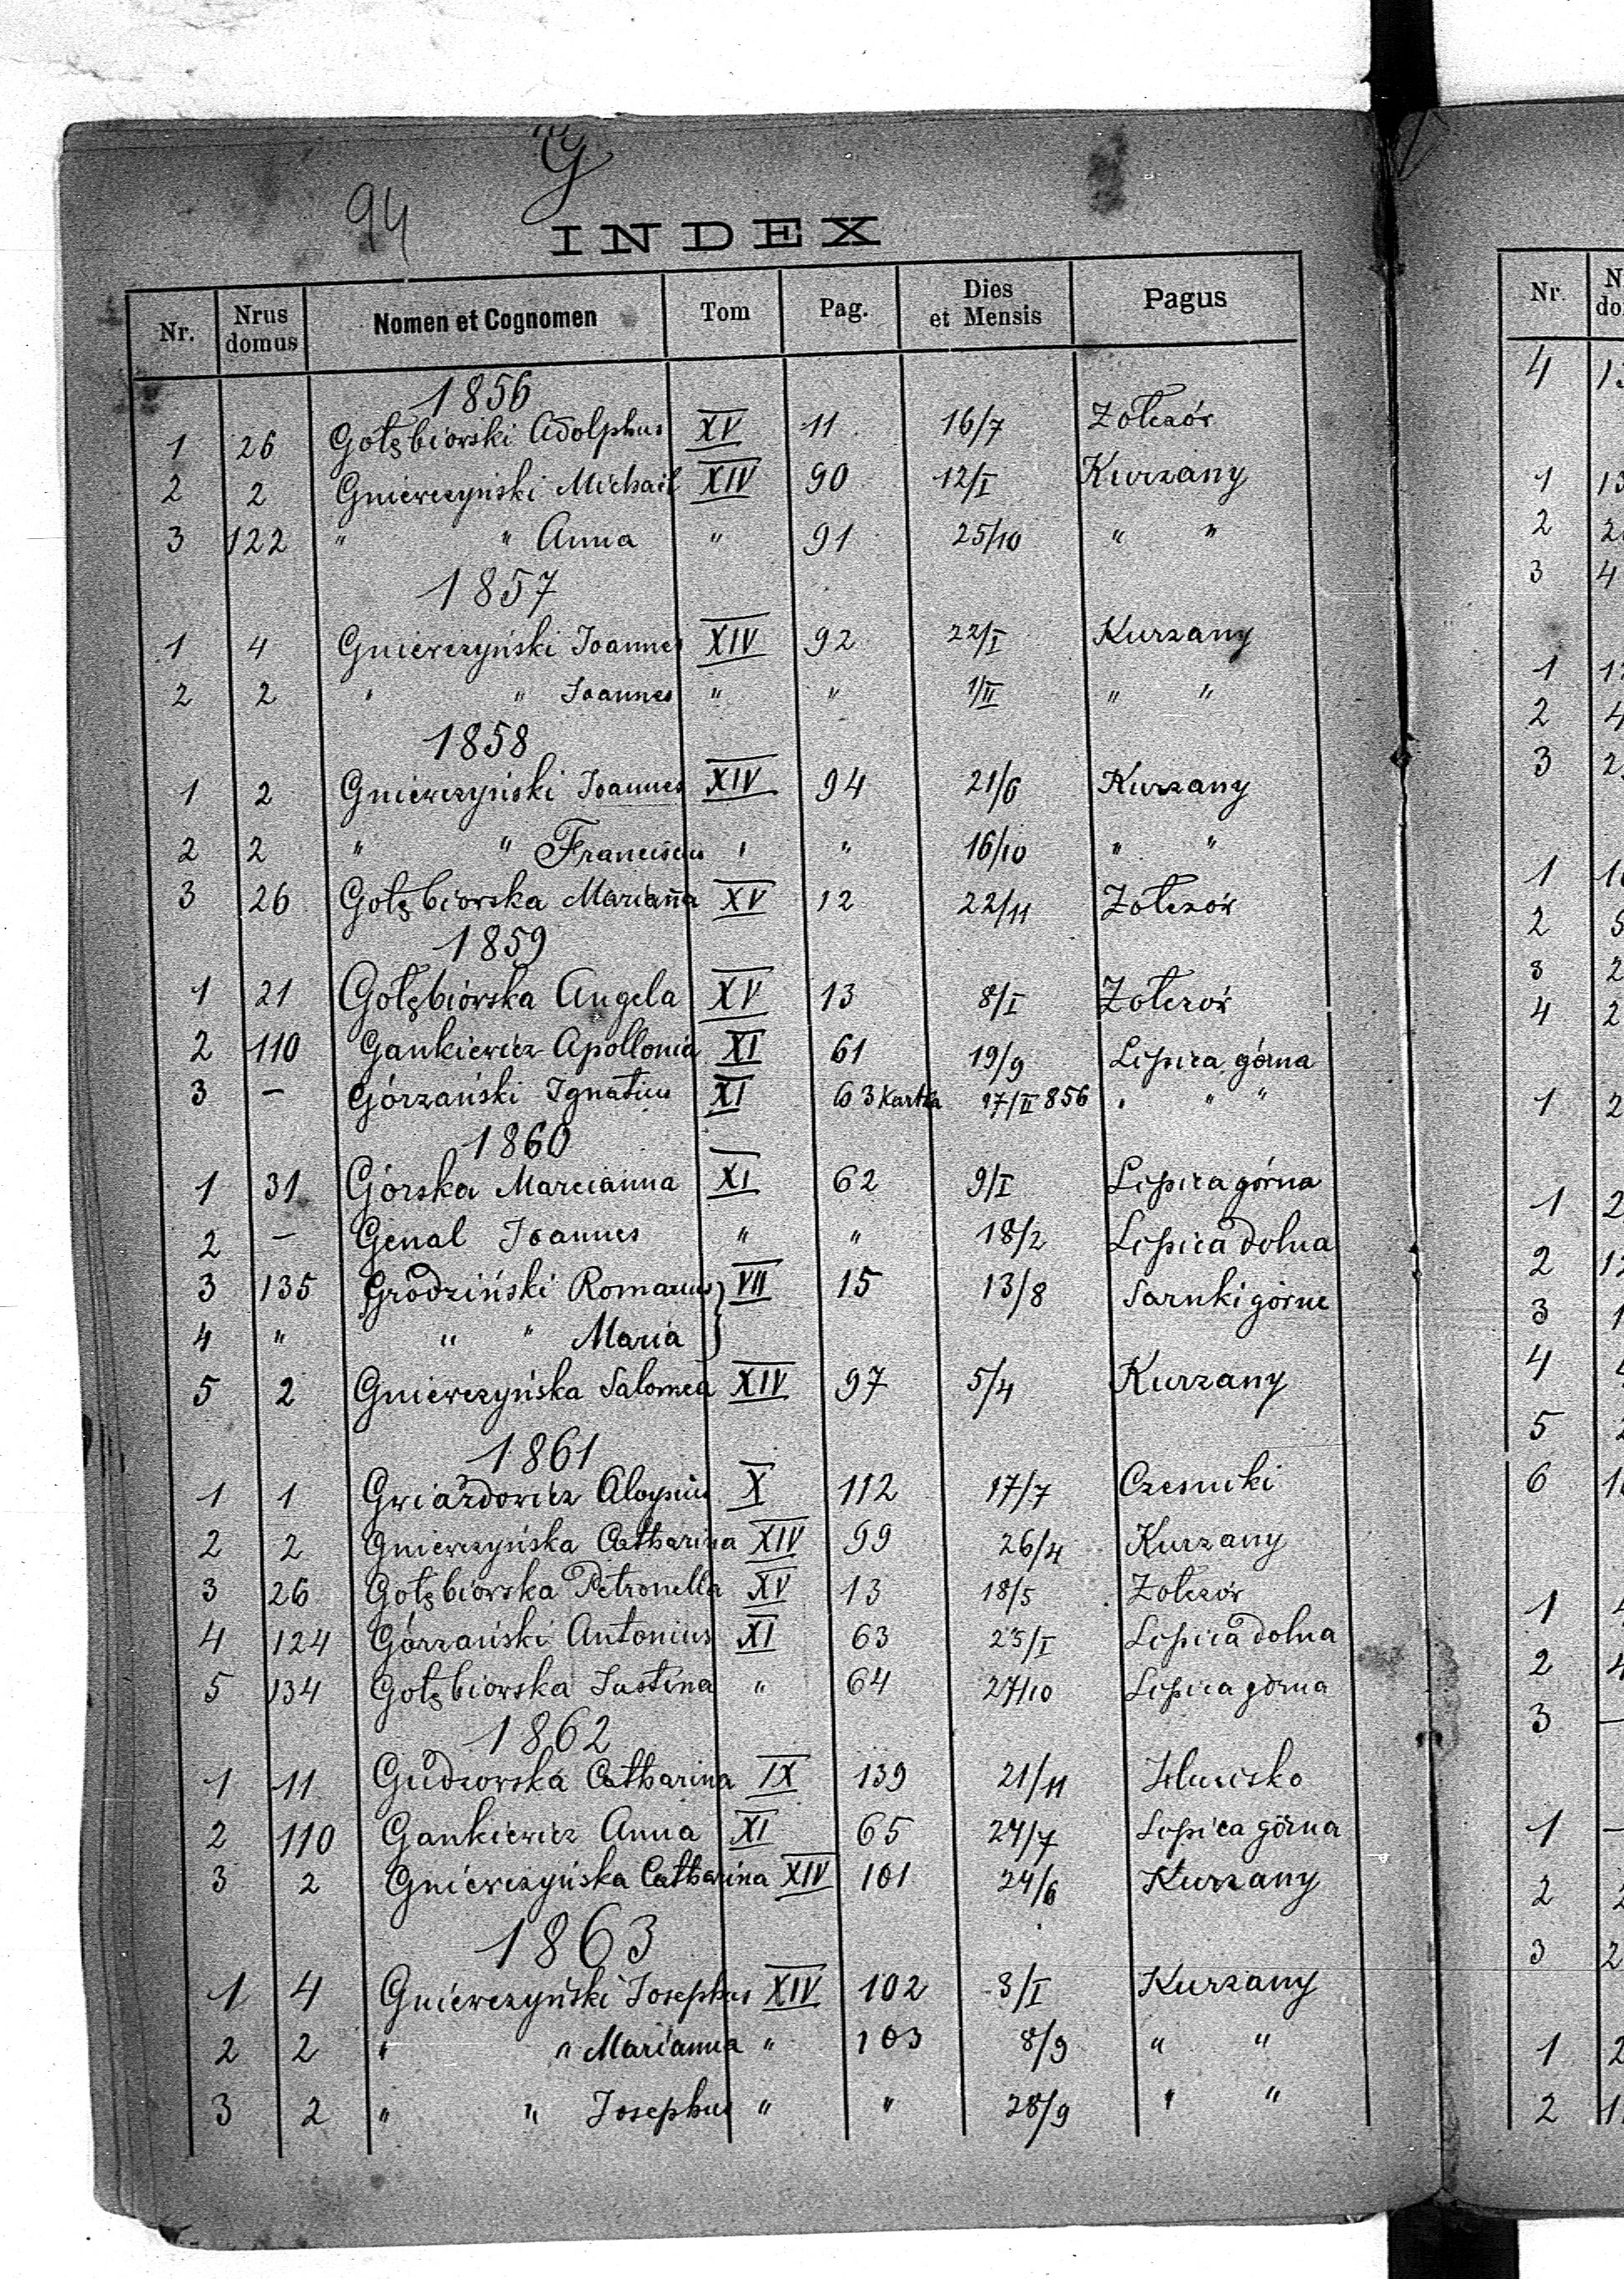 G
94
INDEX
Nr. Nrus domus Nomen et Cognomen Tom Pag. Dies et Mensis Pagus
1856
1 26 Gołębiorski Adolphus XV 11 16/7 Żołczów
2 2 Gnierczyński Michaël XIV 90 12/I Kurzany
3 122 " " Anna " 91 25/10 " "
1857
1 4 Gnierczyński Joannes XIV 92 22/I Kurzany
2 2 " " Joannes " " 1/II " "
1858
1 2 Gnierczyński Joannes XIV 94 21/6 Kurzany
2 2 " " Franciscus " " 16/10 " "
3 26 Gołębiorska Marianna XV 12 22/11 Żołczów
1859
1 21 Gołębiorska Angela XV 13 8/I Żołczów
2 110 Gankiewicz Apollonia XI 61 19/9 Lipica górna
3 - Górzański Ignatius XI 63 Kartka 17/II 856 " " "
1860
1 31 Górska Marcianna XI 62 9/I Lipica górna
2 - Genal Joannes " " 18/2 Lipica dolna
3 135 Grodziński Romanus } VII 15 13/8 Sarnki górne
4 " " " Maria }
5 2 Gnierczyńska Salomea XIV 97 5/4 Kurzany
1861
1 1 Gwiazdowicz Aloysius X 112 17/7 Czesniki
2 2 Gnierczyńska Catharina XIV 99 26/4 Kurzany
3 26 Gołębiorska Petronella XV 13 18/5 Żołczów
4 124 Górzański Antonius XI 63 23/I Lipica dolna
5 134 Gołębiorska Justina " 64 27/10 Lipica górna
1862
1 11 Catharina IX 139 21/11
2 110 Gankiewicz Anna XI 65 24/7 Lipica górna
3 2 Gnierczyńska Catharina XIV 101 24/6 Kurzany
1863
1 4 Gnierczyński Josephus XIV 102 3/I Kurzany
2 2 " " Marianna " 103 8/9 " "
3 2 " " Josephus " " 28/9 " "
Nr.
4
1
2
3
1
2
3
1
2
3
4
1
1
2
3
4
5
6
1
2
3
1
2
3
1
2